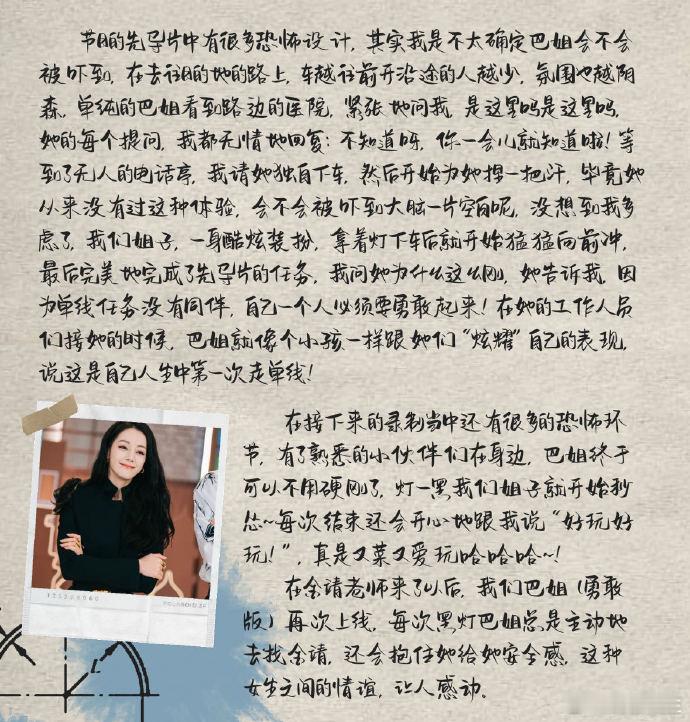 节目的先导片中有很多恐怖设计，其实我是不太确定巴姐会不会
被吓到，在去往目的地的路上，车越往前开沿途的人越少，氛围也越阴
森，单纯的巴姐看到路边的医院，紧张地问我，是这里吗是这里吗，
她的每个提问，我都无情地回复：不知道呀，你一会儿就知道啦！等
到了无人的电话亭，我请她独自下车，然后开始为她捏一把汗，毕竟她
从来没有过这种体验，会不会被吓到大脑一片空白呢，没想到我多
虑了，我们姐子，一身酷炫装扮，拿着灯下车后就开始猛猛向前冲，
最后完美地完成了先导片的任务，我问她为什么这么刚，她告诉我，因
为单线任务没有同伴，自己一个人必须要勇敢起来！在她的工作人员
们接她的时候，巴姐就像个小孩一样跟她们“炫耀”自己的表现，
说这是自己人生中第一次走单线！
在接下来的录制当中还有很多的恐怖环
节，有了熟悉的小伙伴们在身边，巴姐终于
可以不用硬刚了，灯一黑我们姐子就开始秒
怂~每次结束还会开心地跟我说“好玩好
玩！”，真是又菜又爱玩哈哈哈~！
在余请老师来了以后，我们巴姐（勇敢
版）再次上线，每次黑灯巴姐总是主动地
去找余请，还会抱住她给她安全感，这种
女生之间的情谊，让人感动。